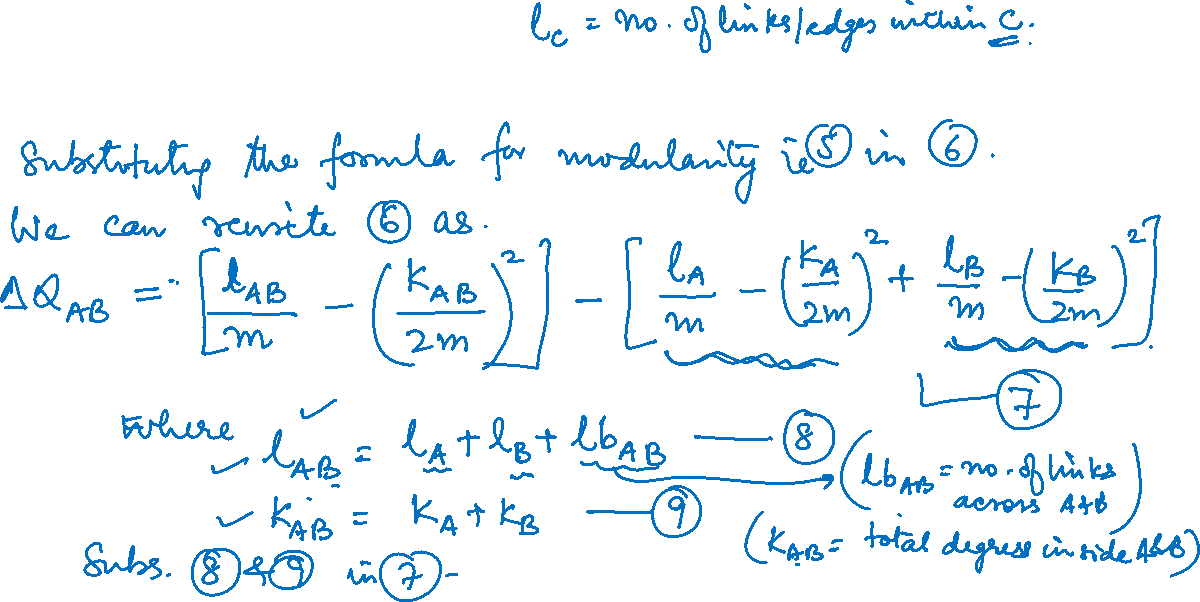 l_c = no. of links/edges within C.
Substituting the formula for modularity ie ⑤ in ⑥.
We can rewrite ⑥ as.
ΔQ_AB = [l_AB/m - (K_AB/2m)²] - [l_A/m - (K_A/2m)² + l_B/m - (K_B/2m)²]
⑦
Where l_AB = l_A + l_B + lb_AB — ⑧ (lb_AB = no. of links across A & B)
K_AB = K_A + K_B — ⑨ (K_AB = total degrees inside A&B)
Subs. ⑧ & ⑨ in ⑦ -